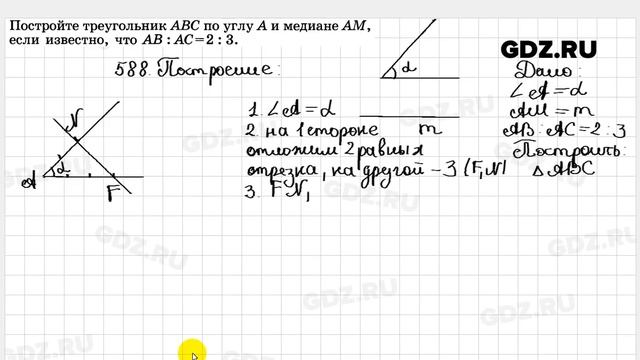 Постройте треугольник ABC по углу A и медиане AM,
если известно, что AB : AC = 2 : 3.
GDZ.RU
588. Построение:
α
Дано:
∠A = α
AM = m
AB : AC = 2 : 3
Построить:
△ABC
1. ∠A = α
m
2. на 1 стороне
отложим 2 равных
отрезка, на другой – 3 (F, N)
3. FN,
N
A
α
F
GDZ.RU
GDZ.RU
GDZ.RU
GDZ.RU
GDZ.RU